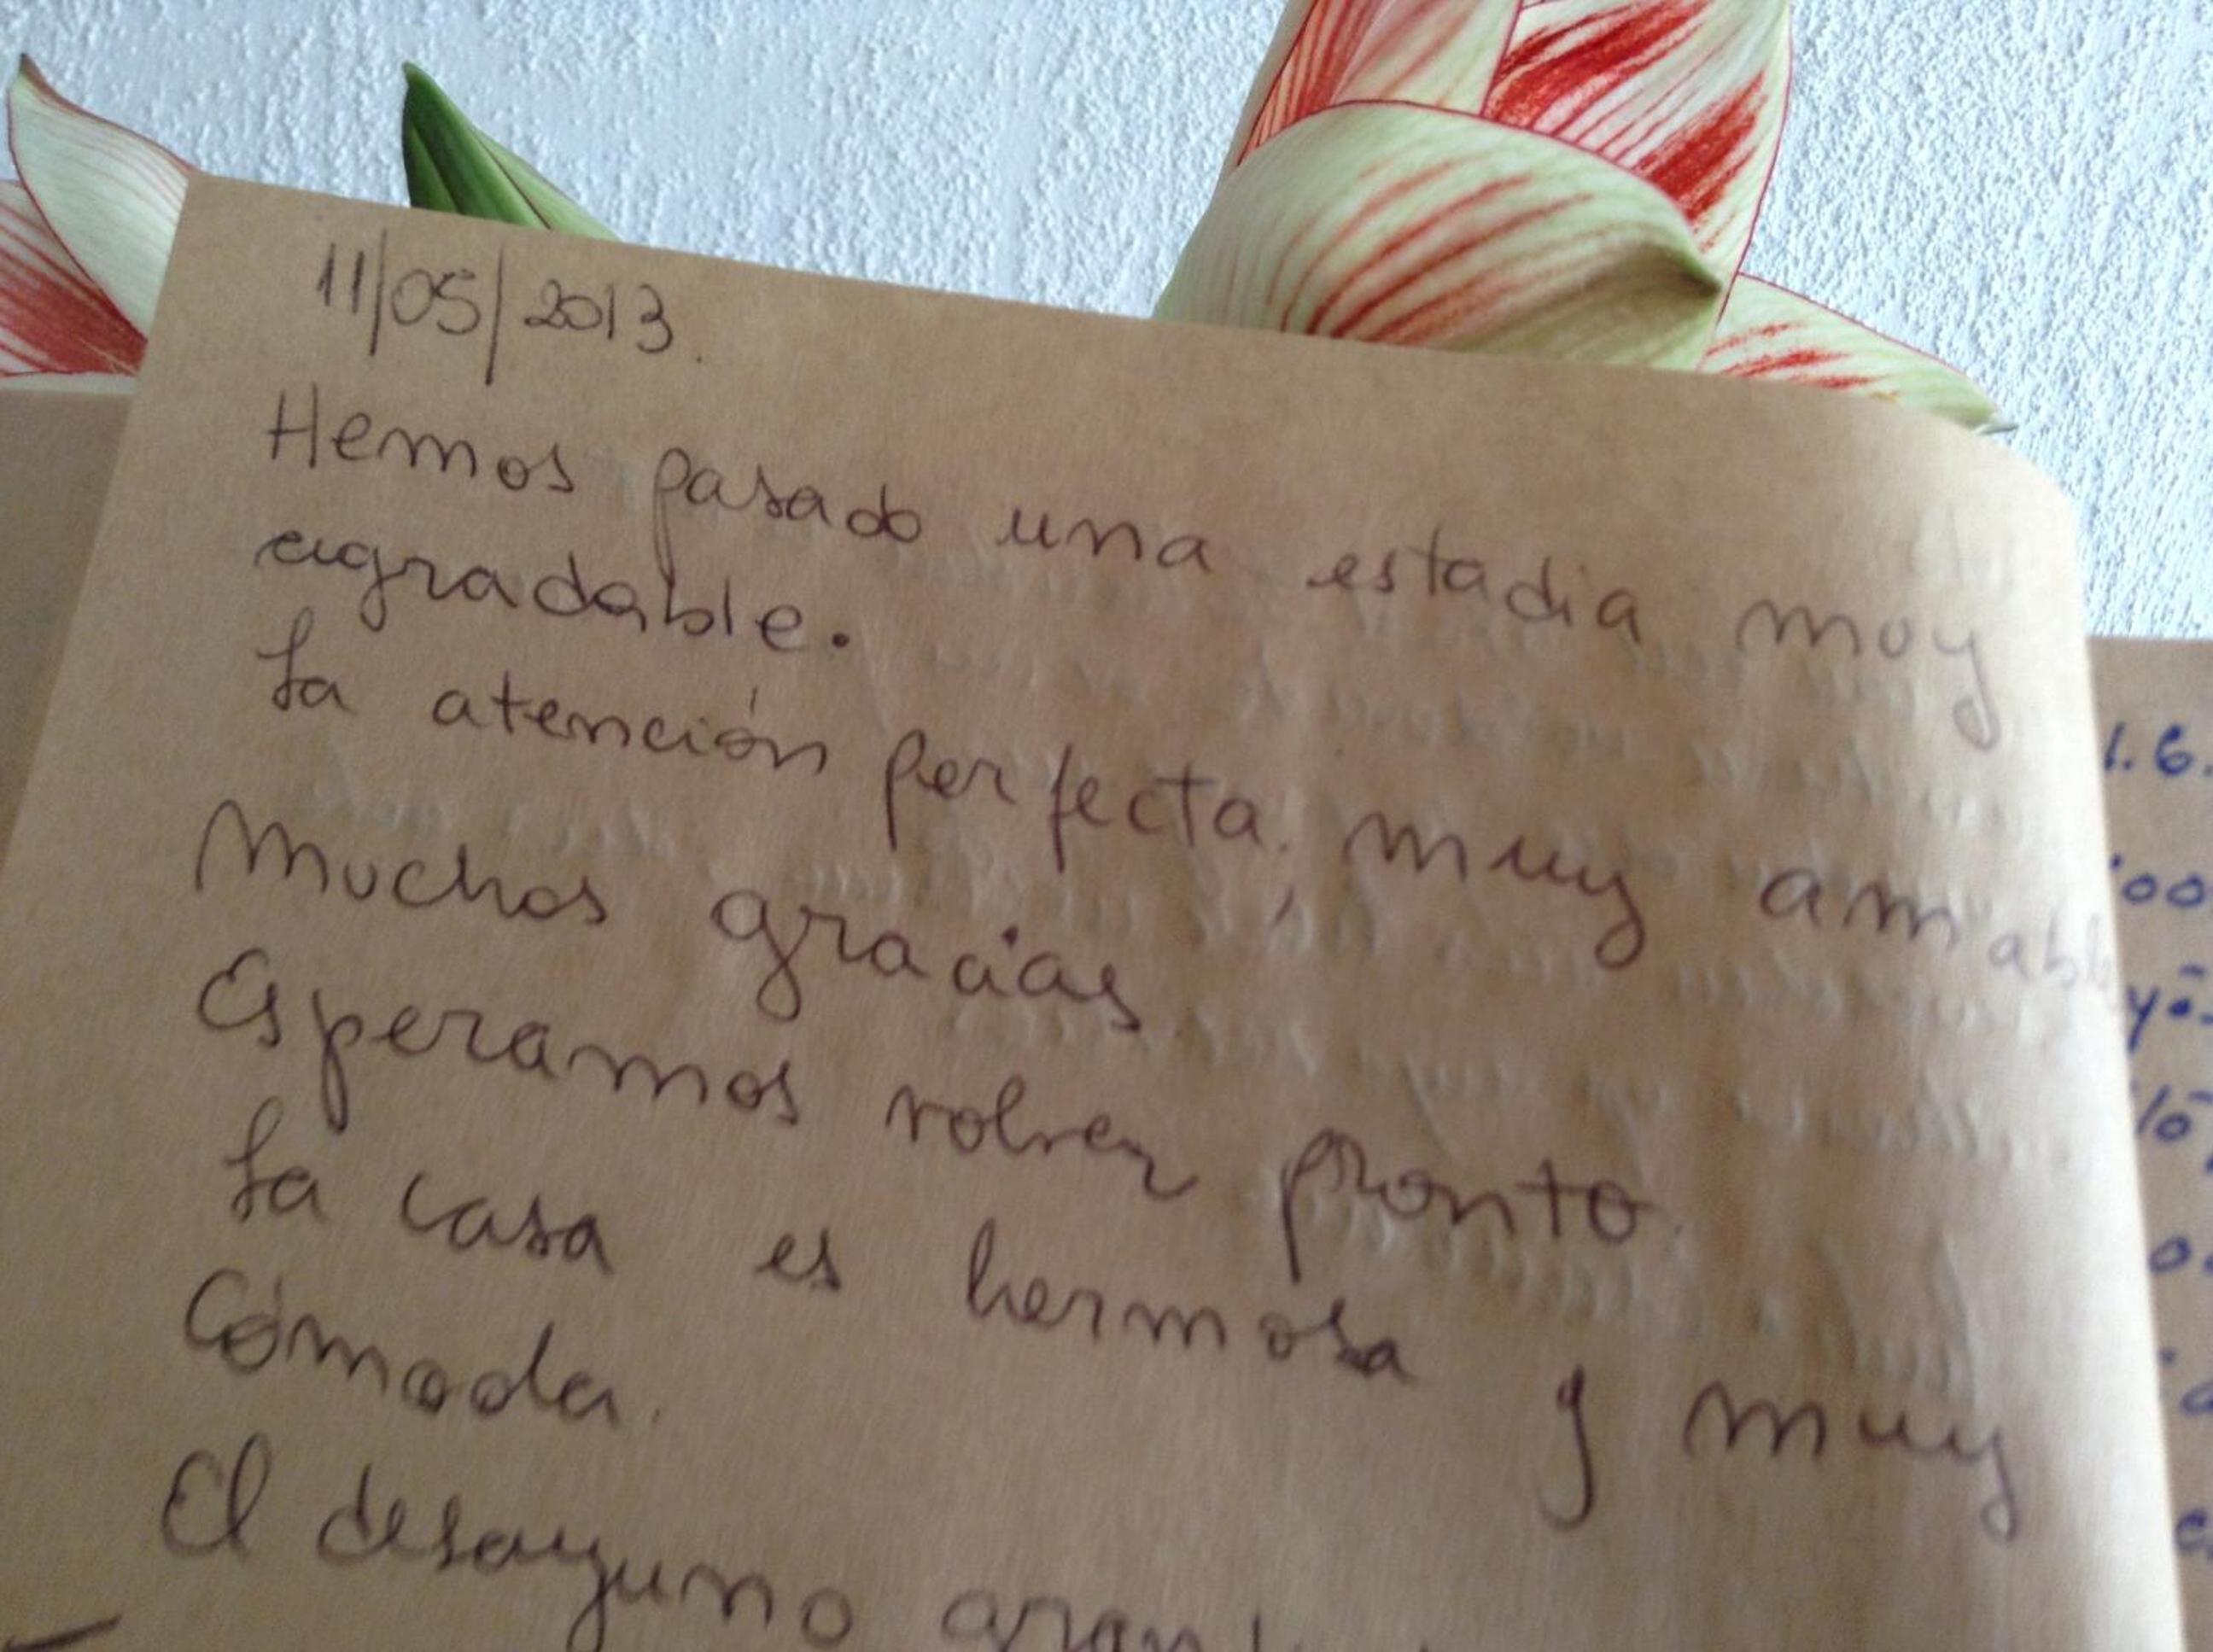 11/05/2013.
Hemos pasado una estadia muy
agradable.
La atención perfecta, muy amable
Muchas gracias
Esperamos volver pronto.
La casa es hermosa y muy
Cómoda.
El desayuno
1.6.